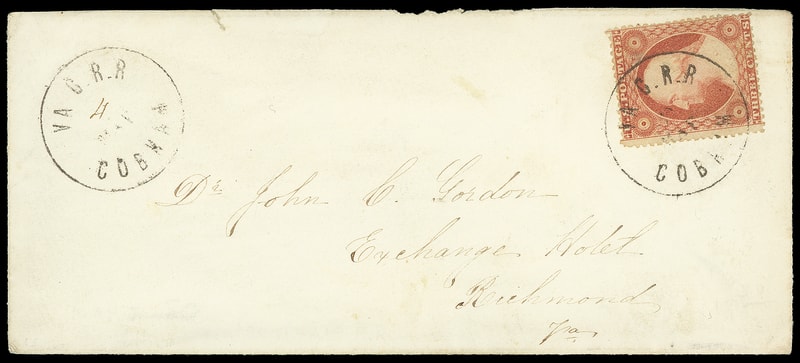 VA C.R.R
4
COBHAM
U.S. POSTAGE
THREE CENTS
VA C.R.R
COBHAM
Dr. John C. Gordon
Exchange Hotel
Richmond
Va